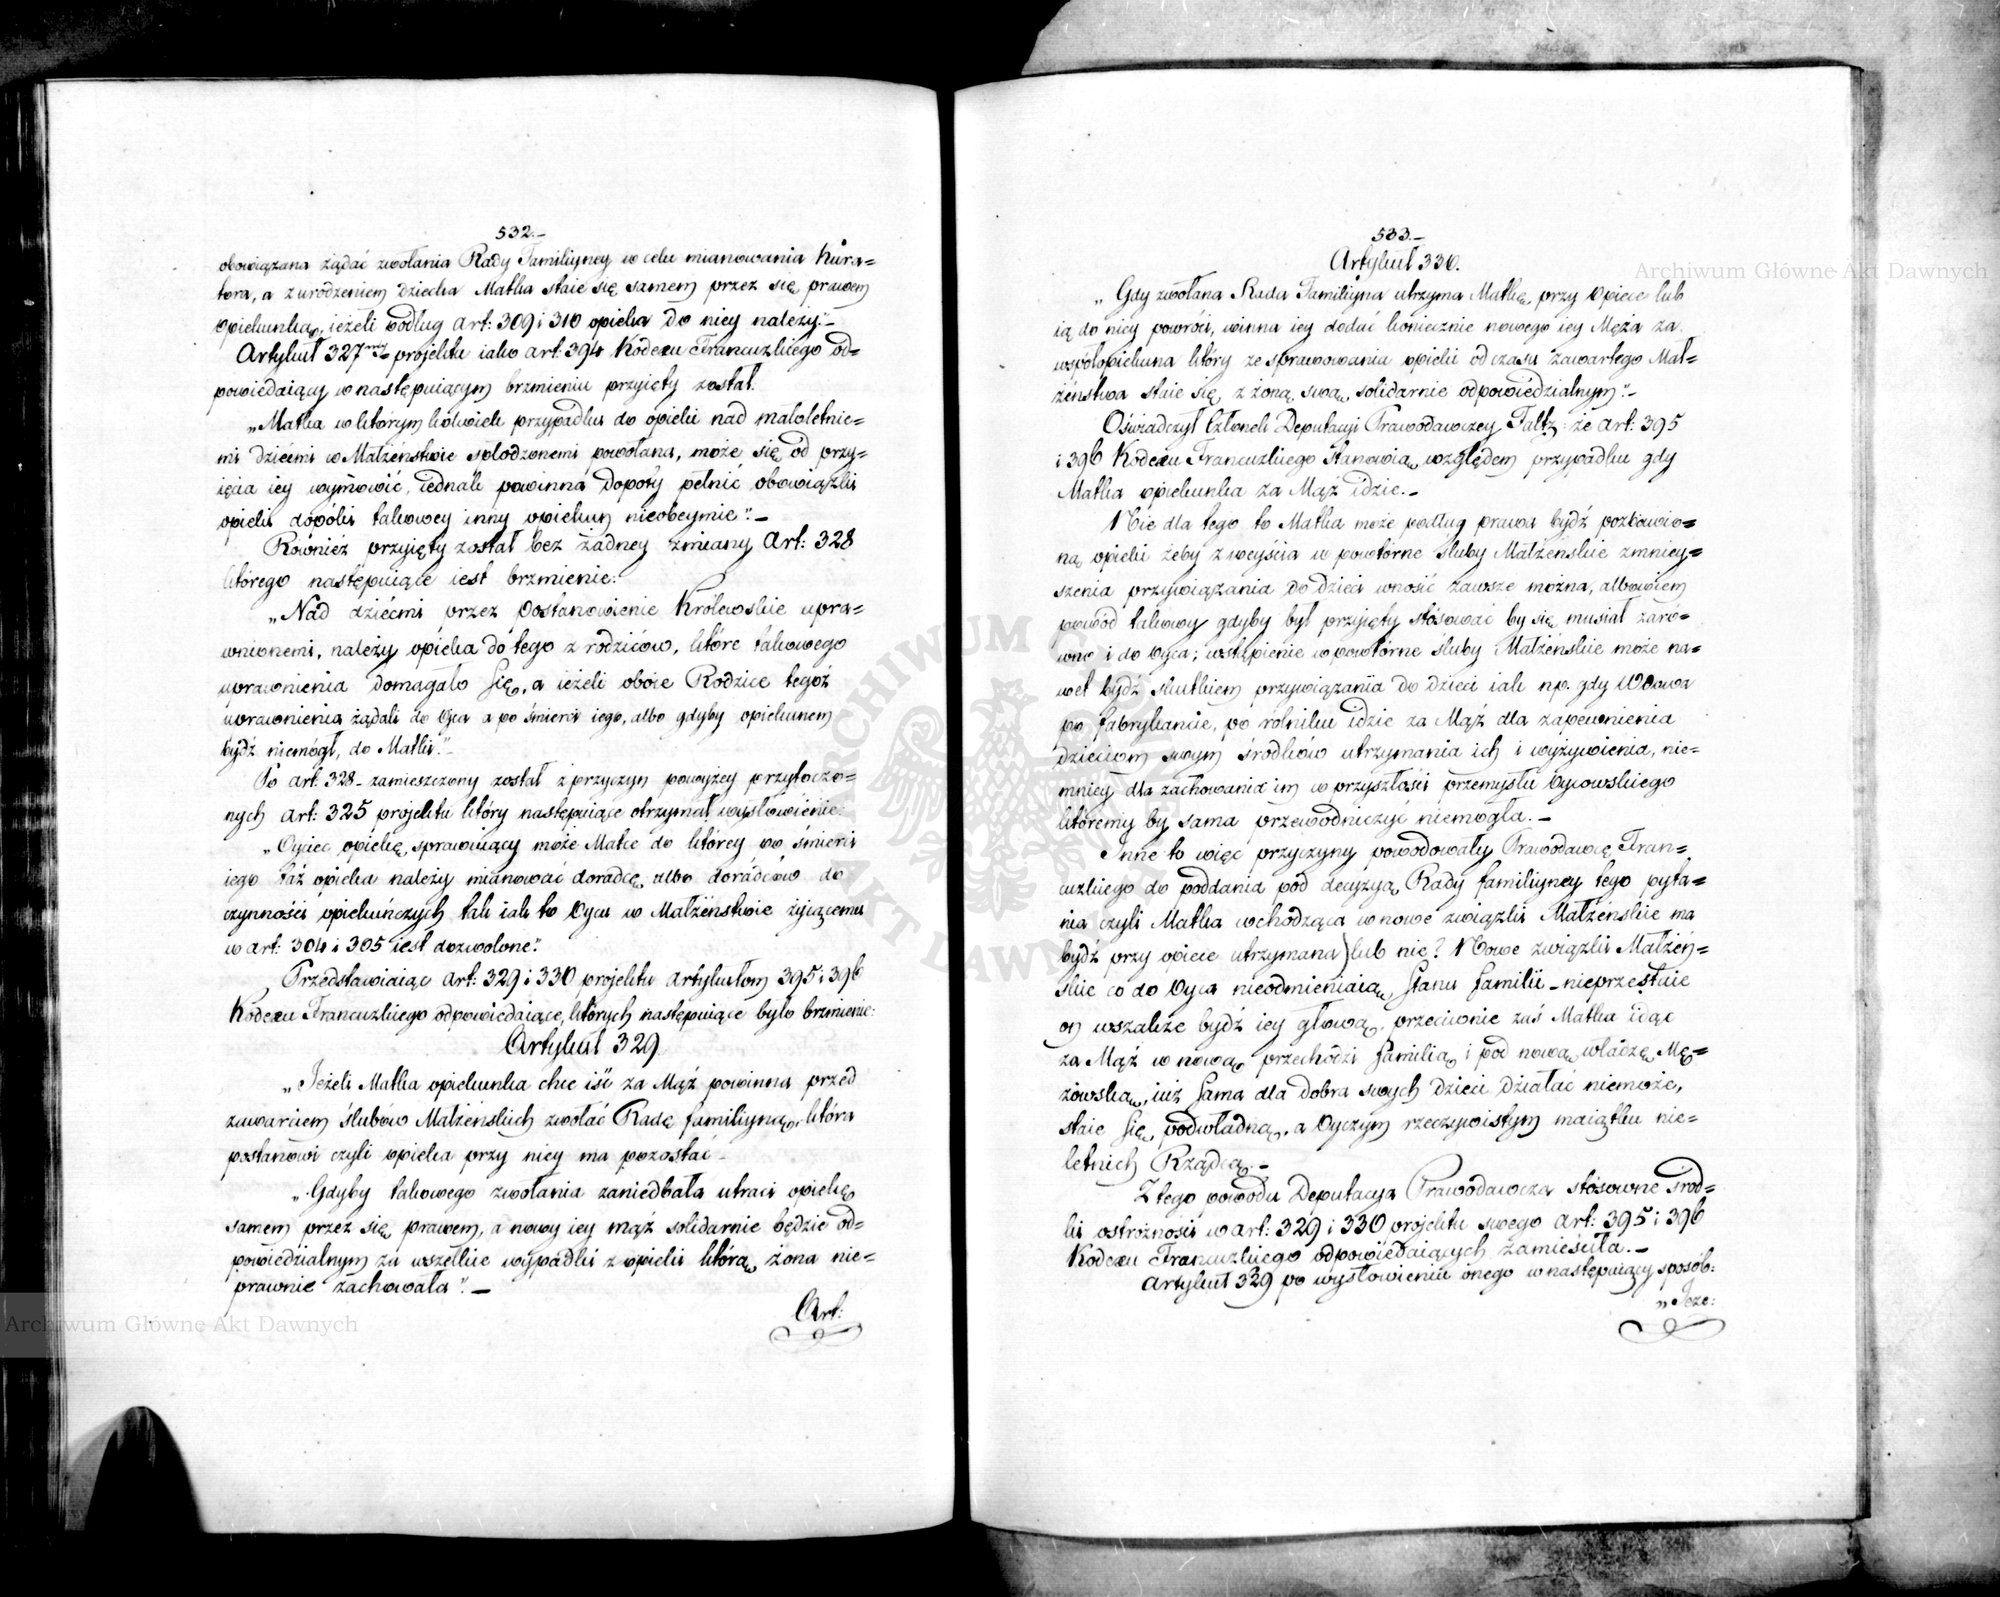 532.–
obowiązana żądać zwołania Rady Familiyney w celu mianowania Kura=
tora, a z urodzeniem dziecka Matka staie się samem przez się prawem
opiekunką, ieżeli podług Art: 309 i 310 opieka do niey należy."–
Artykuł 327my projektu iako art: 394 Kodexu Francuzkiego od=
powiedaiący w następuiącym brzmieniu przyięty został.
„Matka w którym kolwiek przypadku do opieki nad małoletnie=
mi dziećmi w Małżeństwie spłodzonemi powołana, może się od przy=
ięcia iey wymowić, iednak powinna dopoty pełnić obowiązki
opieki dopóki takowey inny opiekun nieobeymie".–
Również przyięty został bez żadney zmiany Art: 328
którego następuiące iest brzmienie:
„Nad dziećmi przez Postanowienie Królewskie upra=
wnionemi, należy opieka do tego z rodziców, które takowego
uprawnienia domagało się, a ieżeli oboie Rodzice tegoż
uprawnienia żądali do Oyca a po śmierci iego, albo gdyby opiekunem
bydź niemógł, do Matki."–
Po art: 328 zamieszczony został z przyczyn powyżey przytoczo=
nych art: 325 projektu który następuiące otrzymał wysłowienie:
„Oyciec opiekę sprawuiący może Matce do którey po śmierci
iego taż opieka należy mianować doradcę, albo doradców do
czynności opiekuńczych tak iak to Oycu w Małżeństwie żyiącemu
w art: 304 i 305 iest dozwolone".
Przedstawiaiąc Art: 329 i 330 projektu Artykułom 395 i 396
Kodexu Francuzkiego odpowiedaiące, których następuiące było brzmienie:
Artykuł 329.
„Jeżeli Matka opiekunka chce iść za Mąż powinna przed
zawarciem ślubów Małżeńskich zwołać Radę familiyną, która
postanowi czyli opieka przy niey ma pozostać –
„Gdyby takowego zwołania zaniedbała utraci opiekę
samem przez się prawem, a nowy iey mąż solidarnie będzie od=
powiedzialnym za wszelkie wypadki z opieki którą żona nie=
prawnie zachowała".–
Art:
533.–
Artykuł 330.
„Gdy zwołana Rada Familiyna utrzyma Matkę, przy Opiece lub
ią do niey powróci, winna iey dodać koniecznie nowego iey Męża za
współopiekuna który ze sprawowania opieki od czasu zawartego Mał=
żeństwa staie się z żoną swą solidarnie odpowiedzialnym".–
Oświadczył Członek Deputacyi Prawodawczey Faltz: że Art: 395
i 396 Kodexu Francuzkiego stanowią względem przypadku gdy
Matka opiekunka za Mąż idzie.–
Nie dla tego to Matka może podług prawa bydź pozbawio=
ną opieki żeby z weyścia w powtórne śluby Małżeńskie zmniey=
szenia przywiązania do dzieci wnosić zawsze można, albowiem
powód takowy gdyby był przyięty stósować by się musiał zaró=
wno i do Oyca; wstąpienie w powtórne śluby Małżeńskie może na=
wet bydź skutkiem przywiązania do dzieci iak np. gdy Wdowa
po fabrykancie, po rolniku idzie za Mąż dla zapewnienia
dzieciom swym środków utrzymania ich i wyżywienia, nie=
mniey dla zachowania im w przyszłości przemysłu Oycowskiego
któremu by sama przewodniczyć niemogła.–
Inne to więc przyczyny powodowały Prawodawcę Fran=
cuzkiego do poddania pod decyzyą Rady familiyney tego pyta=
nia czyli Matka wchodząca w nowe związki Małżeńskie ma
bydź przy opiece utrzymana lub nie? Nowe związki Małżeń=
skie co do Oyca nieodmieniaią Stanu familii – nieprzestaie
on wszakże bydź iey głową, przeciwnie zaś Matka idąc
za Mąż w nową przechodzi familią i pod nową władzę Mę=
żowską, iuż sama dla dobra swych dzieci działać niemoże,
staie się podwładną, a Oyczym rzeczywistym maiątku nie=
letnich Rządcą.–
Z tego powodu Deputacya Prawodawcza stósowne środ=
ki ostrożności w art: 329 i 330 projektu swego Art: 395 i 396
Kodexu Francuzkiego odpowiedaiących zamieściła.–
Artykuł 329 po wysłowieniu onego w następuiący sposób:
„Jeże:
Archiwum Główne Akt Dawnych
Archiwum Główne Akt Dawnych
ARCHIWUM GŁÓWNE AKT DAWNYCH